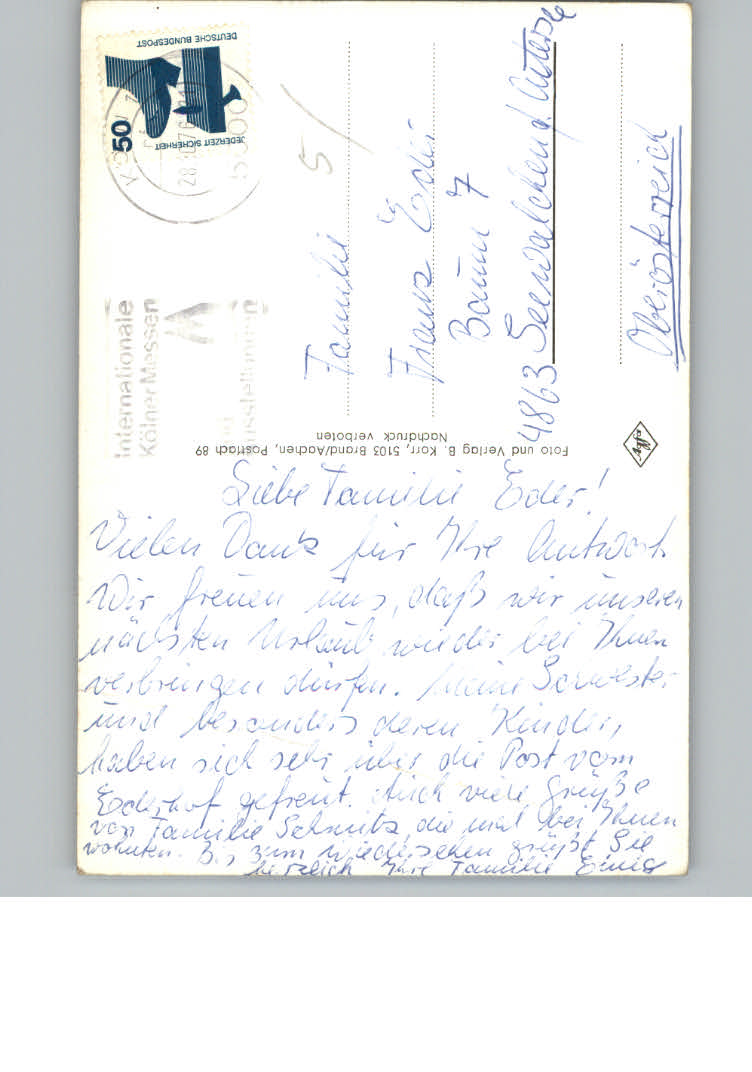 DEUTSCHE BUNDESPOST
JEDERZEIT SICHERHEIT
50
28.10.76
5000
Internationale
Kölner Messen
und
Ausstellungen
5
Familie
Franz Eder
Baum 7
4863 Seewalchen a. Attersee
Oberösterreich
Foto und Verlag B. Korr, 5103 Brand/Aachen, Postfach 89
Nachdruck verboten
Liebe Familie Eder!
Vielen Dank für Ihre Antwort.
Wir freuen uns, daß wir unseren
nächsten Urlaub wieder bei Ihnen
verbringen dürfen. Meine Schwester
und besonders deren Kinder,
haben sich sehr über die Post vom
Ederhof gefreut. Auch viele Grüße
von Familie Schmitz, die mal bei Ihnen
wohnten. Bis zum Wiedersehen grüßt Sie
herzlich Ihre Familie